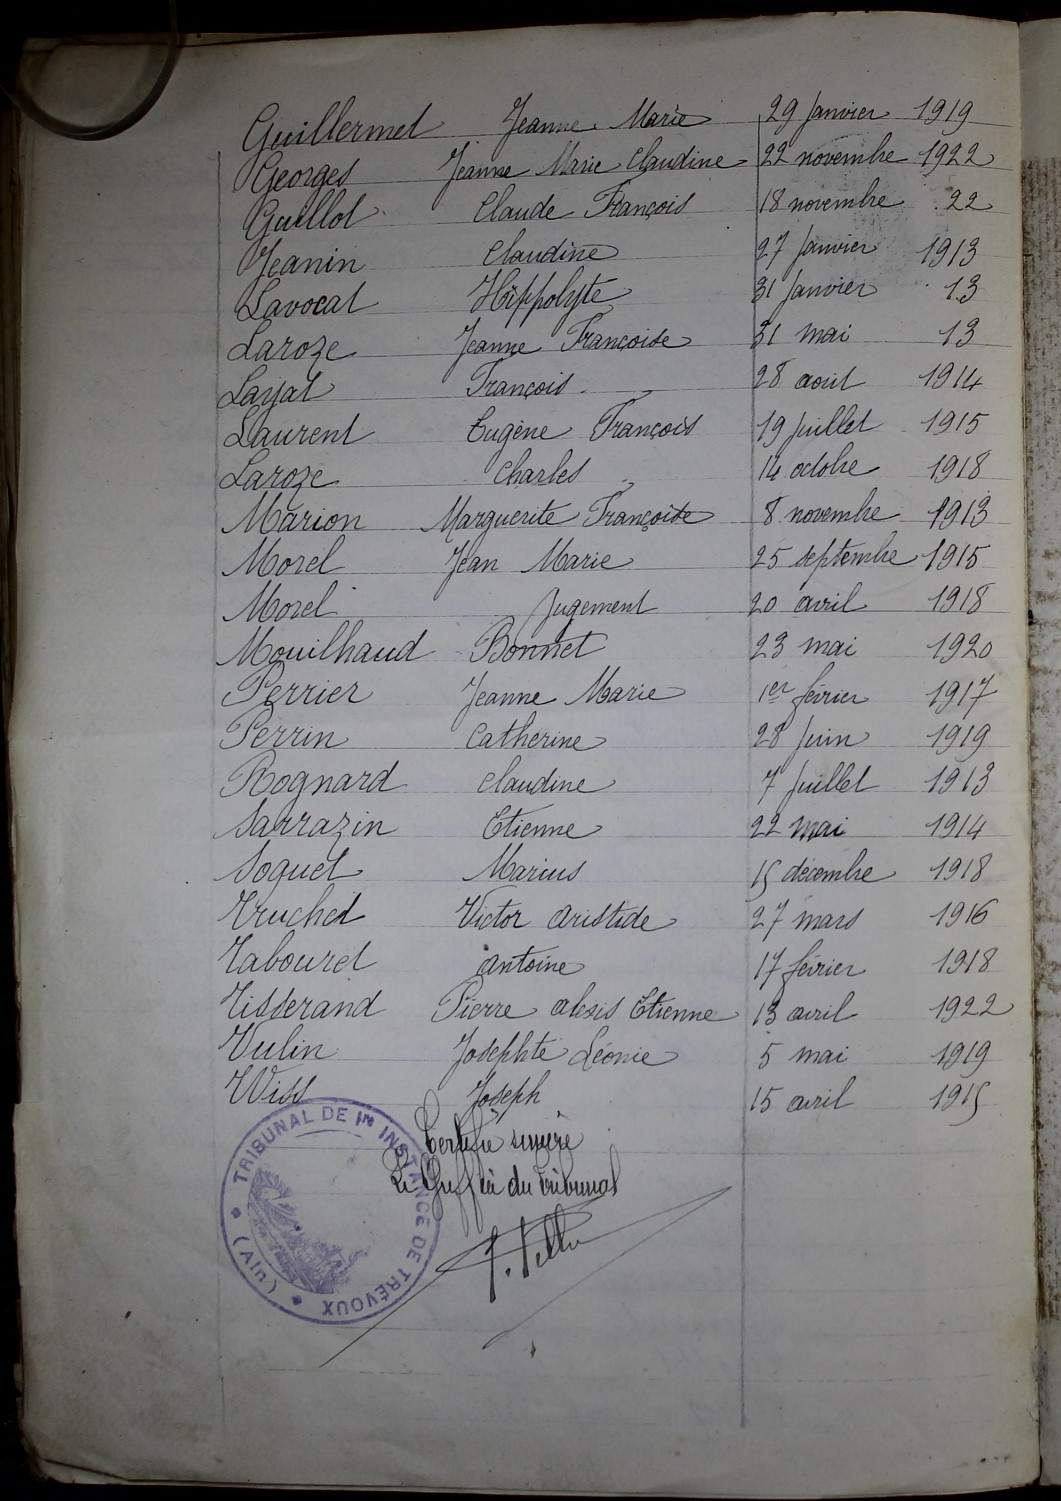 Guillermet Jeanne Marie 29 Janvier 1919
Georges Jeanne Marie Claudine 22 novembre 1922
Guillot Claude François 18 novembre 22
Jeanin Claudine 27 Janvier 1913
Lavocat Hippolyte 31 Janvier 13
Laroze Jeanne Françoise 31 mai 13
Layat François 28 août 1914
Laurent Eugène François 19 Juillet 1915
Laroze Charles 14 octobre 1918
Marion Marguerite Françoise 8 novembre 1913
Morel Jean Marie 25 septembre 1915
Morel Jugement 20 avril 1918
Mouilhaud Bonnet 23 mai 1920
Perrier Jeanne Marie 1er février 1917
Perrin Catherine 28 Juin 1919
Rognard Claudine 7 Juillet 1913
Sarrazin Etienne 22 mai 1914
Soquet Marius 15 décembre 1918
Truchet Victor Aristide 27 mars 1916
Tabouret Antoine 17 février 1918
Tisserand Pierre Alexis Etienne 13 avril 1922
Vulin Josephte Léonie 5 mai 1919
Wiss Joseph 15 avril 1915
Certifié sincère
Le Greffier du Tribunal
TRIBUNAL DE 1re INSTANCE DE TRÉVOUX
(Ain)